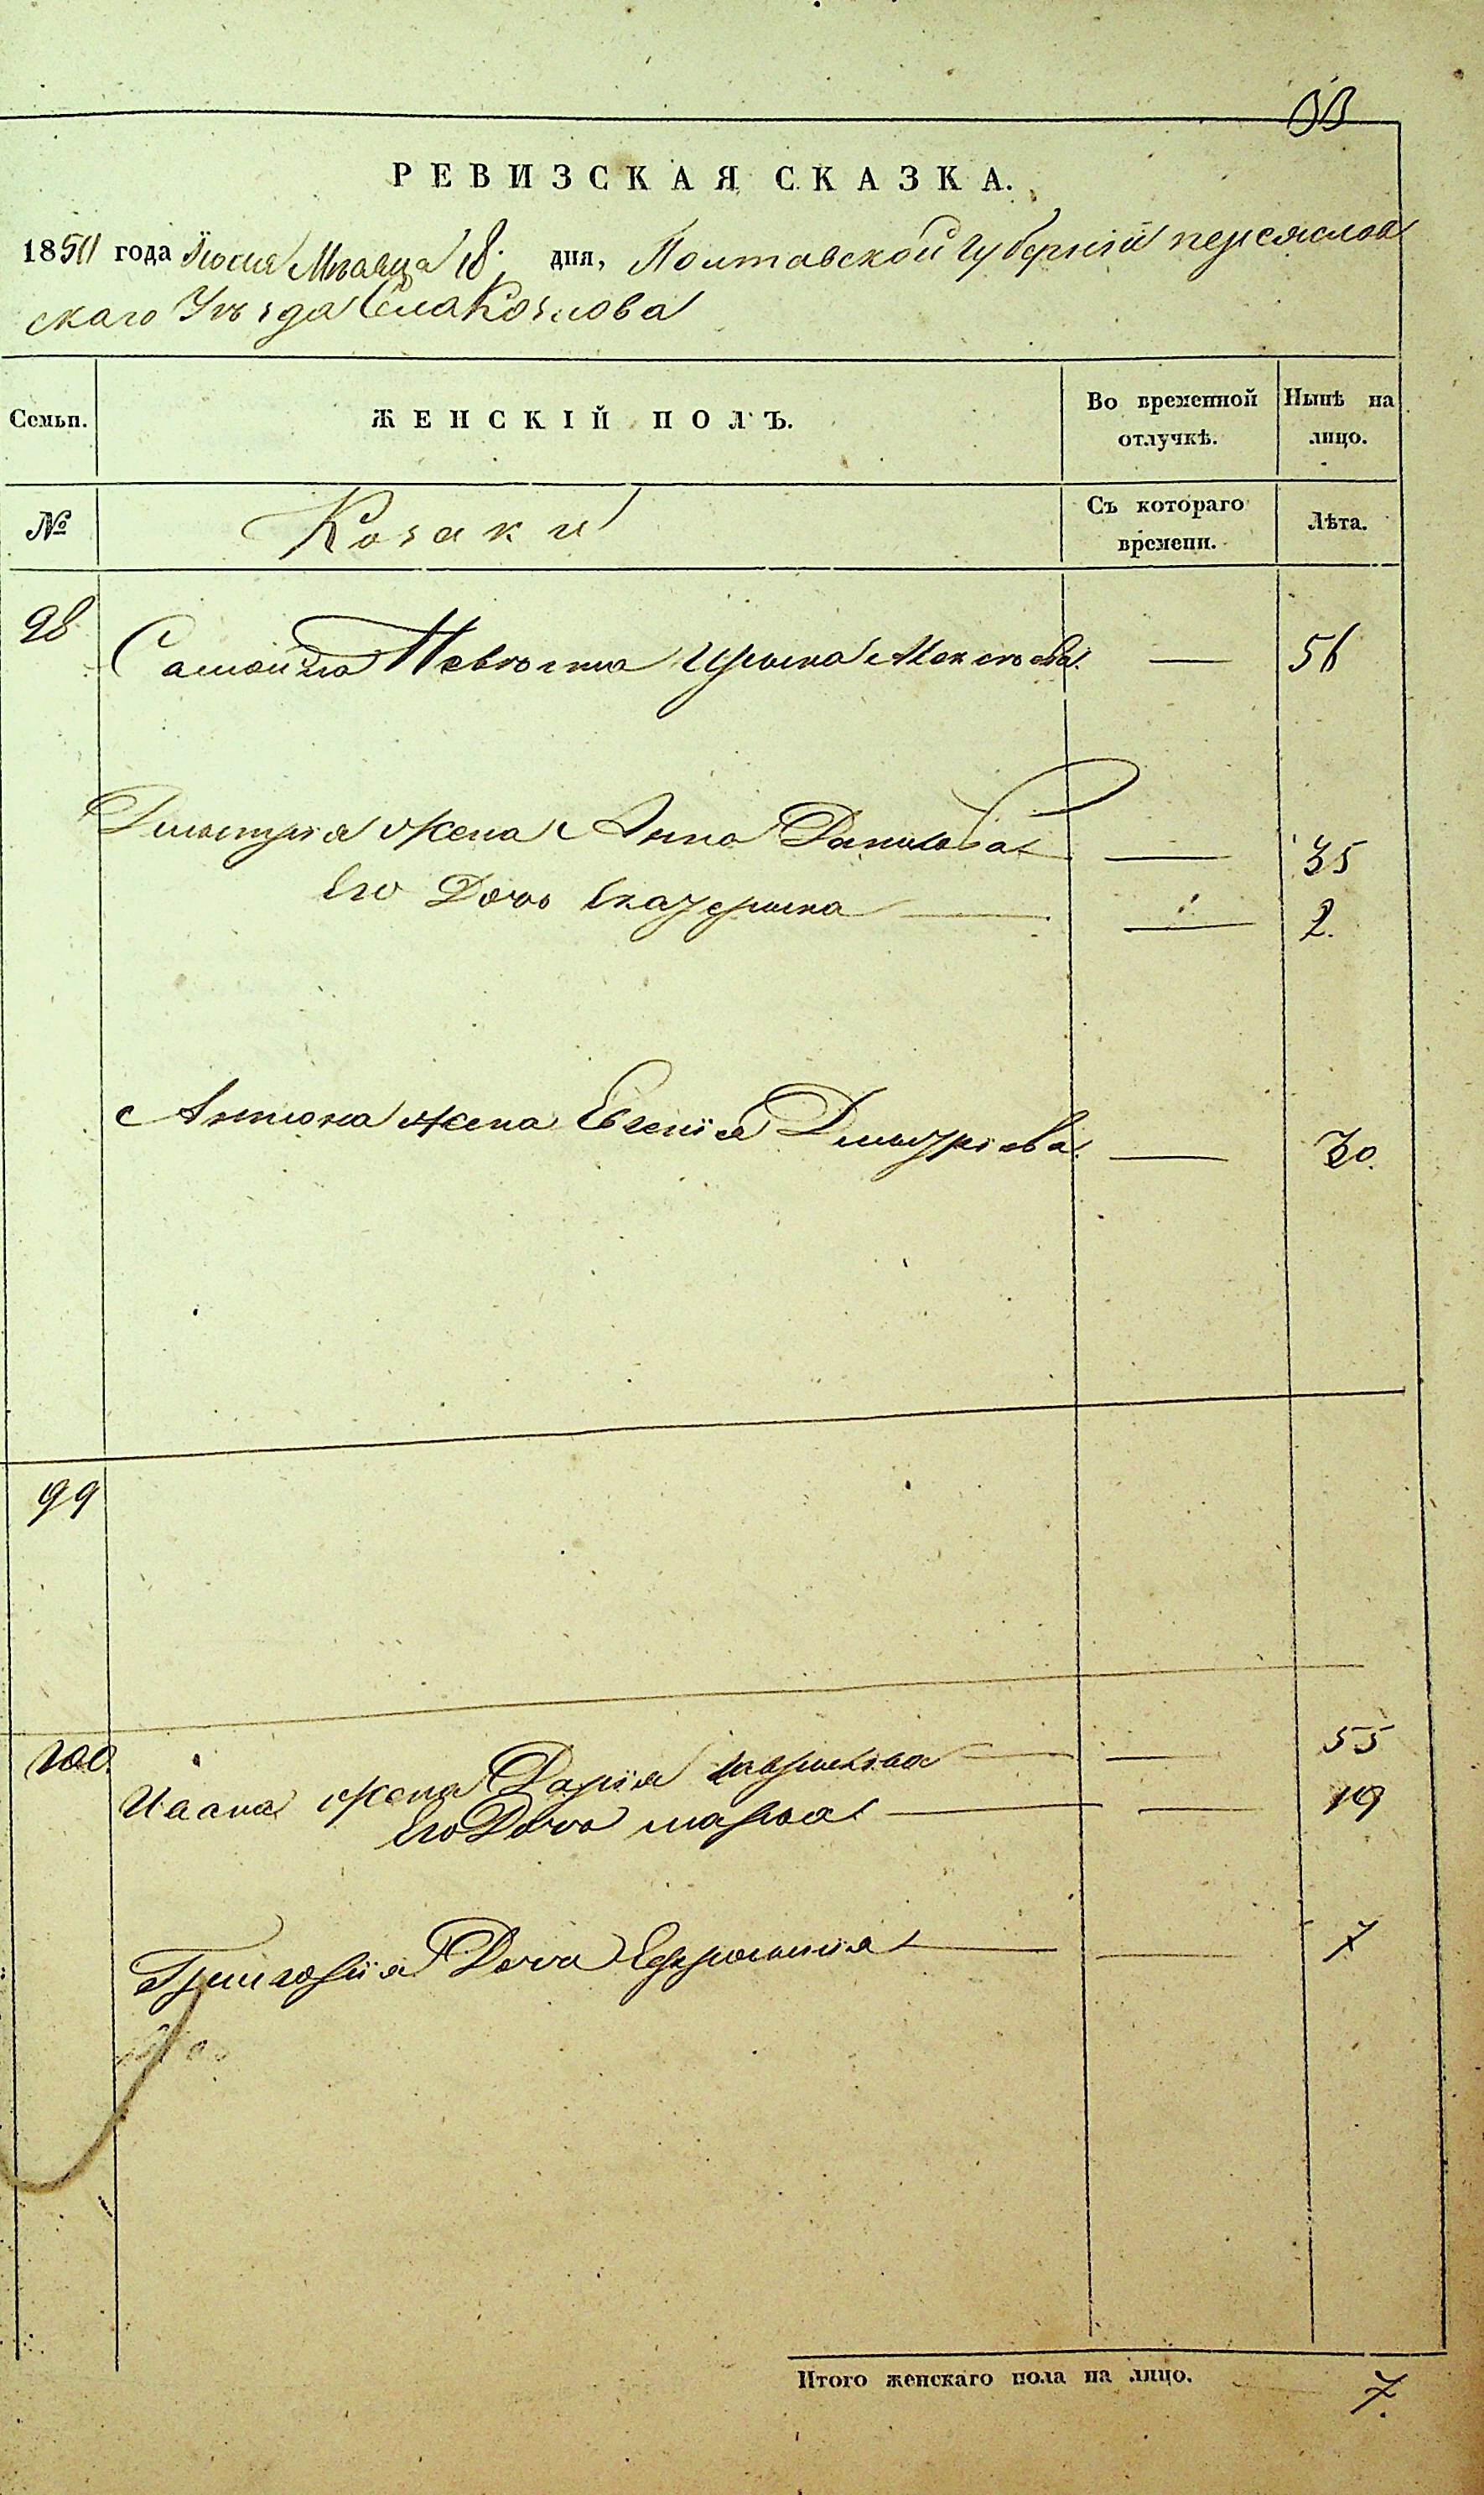 РЕВИЗСКАЯ СКАЗКА.
18 года Мѣсяца 18 дня, Полтавской Губерніи переяслов
скаго Уѣзда Села Козлова
Семьи. ЖЕНСКІЙ ПОЛЪ. Во временной отлучкѣ. Нынѣ на лицо.
№ Козаки Съ котораго времени. Лѣта.
98 Самойла Невѣстка Ирина — 56
Дмитрія жена Анна Данилова — 35
Его Дочь Екатерина — 2.
Антона жена Евгенія Дмитріева — 30.
99
100. Ивана жена Дарія — 55
Его Дочь марья — 19
Григорія Дочь Ефросинія — 7
Итого женскаго пола на лицо. 7.